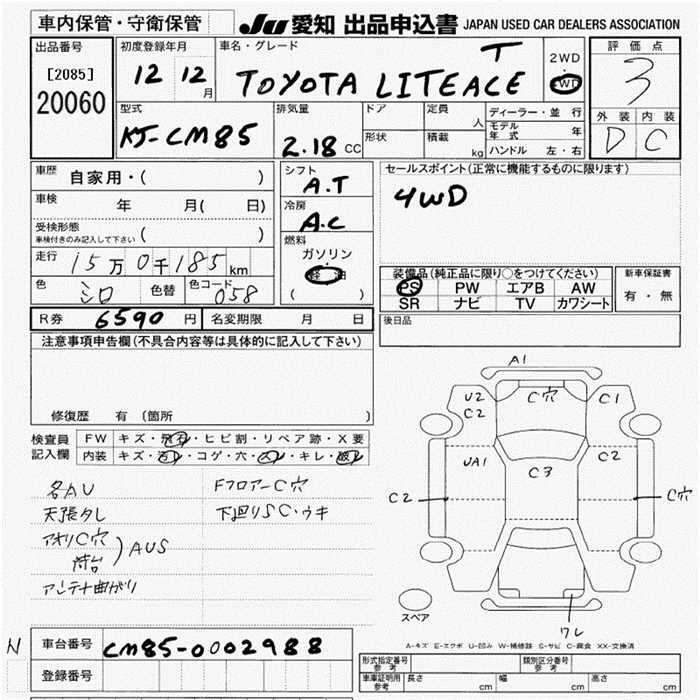 車内保管・守衛保管 JU 愛知 出品申込書 JAPAN USED CAR DEALERS ASSOCIATION
出品番号 初度登録年月 車名・グレード 評価点
[2085] 12 12月 TOYOTA LITEACE T 2WD・4WD 3
20060 外装 内装
型式 排気量 ドア 定員 人 ディーラー・並行 D C
KJ-CM85 2.18 CC 形状 積載 kg モデル年式 年
ハンドル 左・右
車歴 自家用・( ) シフト A.T セールスポイント(正常に機能するものに限ります)
車検 年 月( 日) 冷房 A.C 4WD
受検形態
車検付きのみ記入して下さい( ) 燃料 ガソリン
走行 15万0千185km 軽油 装備品(純正品に限り○をつけてください) 新車保証書
色 シロ 色替 色コード 058 ( ) PS PW エアB AW 有・無
SR ナビ TV カワシート
R券 6590円 名変期限 月 日 後日品
注意事項申告欄(不具合内容等は具体的に記入して下さい)
修復歴 有 〔箇所 〕
検査員記入欄 FW キズ・飛石・ヒビ割・リペア跡・X要
内装 キズ・汚レ・コゲ・穴・スレ・キレ・破レ
各AU Fフロアー C穴
天張タレ 下廻りSC・ウキ
アオリC穴
荷台 )AUS
アンテナ曲がり
A1
U2 C穴 C1
C2
UA1 C3 C2
C2 C穴
ワレ
スペア
A-キズ E-エクボ U-凹み W-補修跡 S-サビ C-腐食 XX-交換済
N 車台番号 CM85-0002988
登録番号
形式指定番号参考 類別区分番号参考
車庫証明用参考 長さ cm 幅 cm 高さ cm